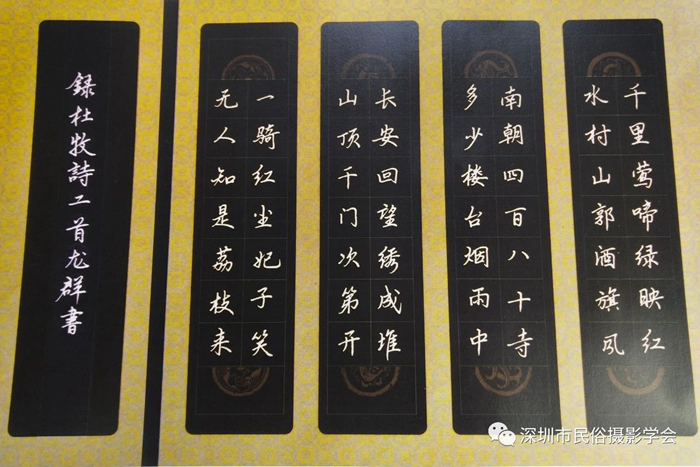 千里莺啼绿映红
水村山郭酒旗风
南朝四百八十寺
多少楼台烟雨中
长安回望绣成堆
山顶千门次第开
一骑红尘妃子笑
无人知是荔枝来
録杜牧詩二首尤群書
深圳市民俗摄影学会